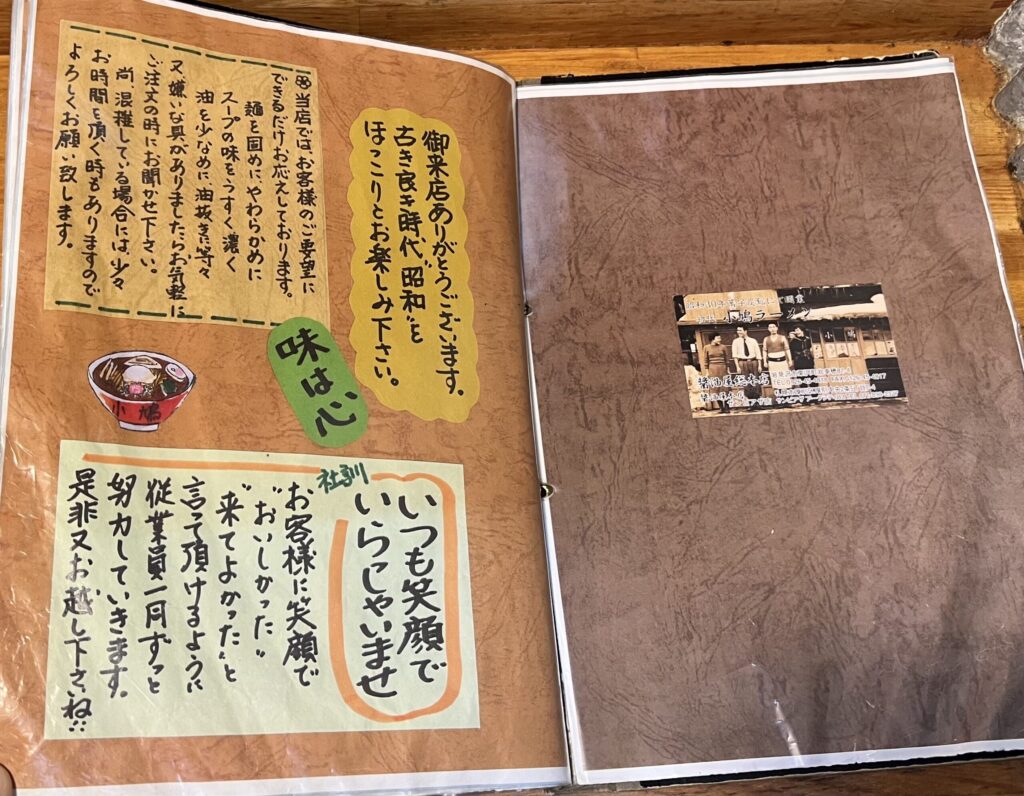 御来店ありがとうございます。
古き良き時代“昭和”を
ほっこりとお楽しみ下さい。
当店では、お客様のご要望に
できるだけお応えしております。
麺を固めに、やわらかめに
スープの味をうすく濃く
油を少なめに油抜きに等々
又嫌いな具がありましたらお気軽に
ご注文の時にお聞かせ下さい。
尚混雑している場合には、少々
お時間を頂く時もありますので
よろしくお願い致します。
味は心
小鳩
社訓
いつも笑顔で
いらっしゃいませ
お客様に笑顔で
“おいしかった”
“来てよかった”と
言って頂けるように
従業員一同ずっと
努力していきます。
是非又お越し下さいね
小鳩ラーメン
醤油屋総本店